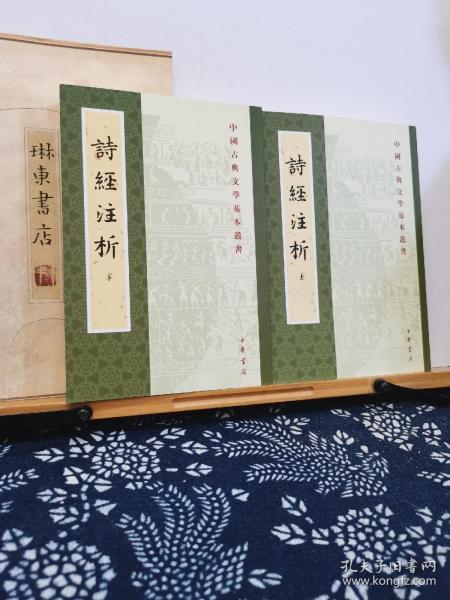 琳東書店
詩經注析
中國古典文學基本叢書
中華書局
詩經注析
上
中國古典文學基本叢書
中華書局
孔夫子旧书网
www.kongfz.com